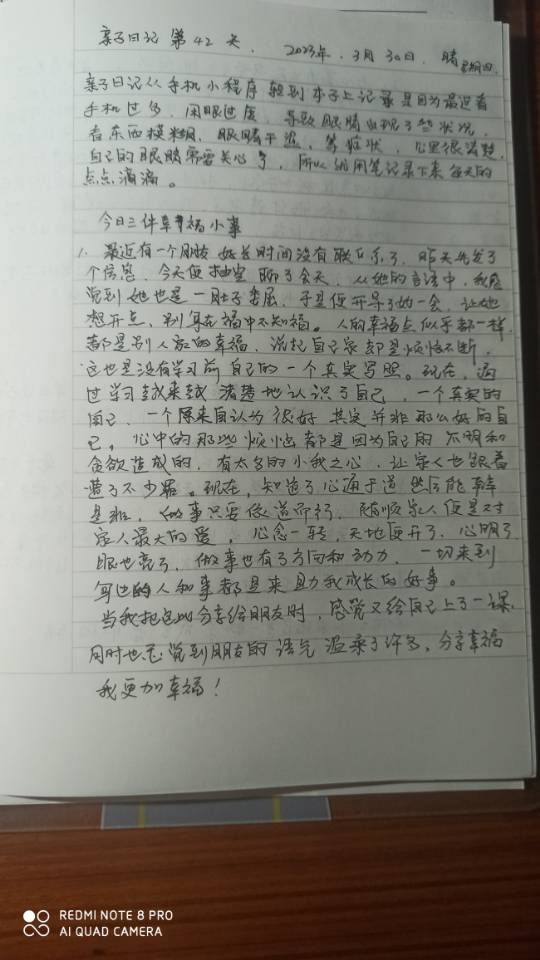 亲子日记第42天. 2023年.3月30日. 晴 星期四.
亲子日记从手机小程序转到本子上记录是因为最近看
手机过多,用眼过度,导致眼睛出现了些状况,
看东西模糊,眼睛干涩,等症状,心里很清楚,
自己的眼睛需要关心了,所以用笔记录下来每天的
点点滴滴。
今日三件幸福小事
1. 最近有一个朋友好长时间没有联系了,昨天她发了
个信息,今天便抽空聊了会天,从她的言语中,我感
觉到她也是一肚子委屈,于是便开导了她一会,让她
想开点,别身在福中不知福。人的幸福点似乎都一样,
都是别人家的幸福,说起自己家都是烦恼不断,
这也是没有学习前自己的一个真实写照。现在,通
过学习越来越清楚地认识了自己,一个真实的
自己,一个原来自认为很好其实并非那么好的自
己,心中的那些烦恼都是因为自己的不明和
贪欲造成的,有太多的小我之心,让家人也跟着
遭了不少罪。现在,知道了心通于道然后能辨
是非,做事只要依道而行,随顺家人便是对
家人最大的爱,心念一转,天地便开了,心明了
眼也亮了,做事也有了方向和动力,一切来到
身边的人和事都是来助我成长的好事。
当我把这些分享给朋友时,感觉又给自己上了一课,
同时也感觉到朋友的语气温柔了许多,分享幸福
我更加幸福!
REDMI NOTE 8 PRO
AI QUAD CAMERA